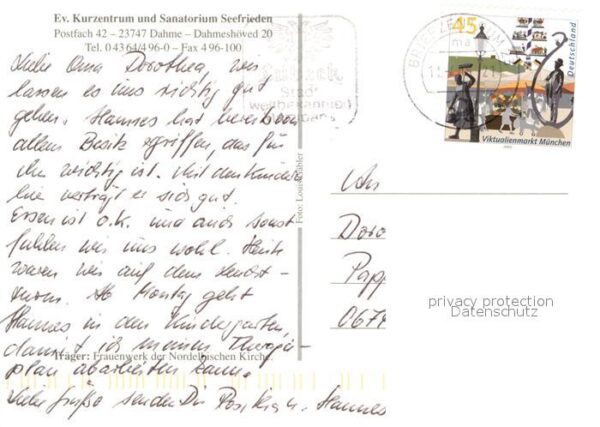 Ev. Kurzentrum und Sanatorium Seefrieden
Postfach 42 – 23747 Dahme – Dahmeshöved 20
Tel. 0 43 64/4 96-0 – Fax 4 96-100
Liebe Oma Dorothea, wir
lassen es uns richtig gut
gehen. Hannes hat von
allem Besitz ergriffen, das für
ihn wichtig ist. Mit den Kindern
hier verträgt er sich gut.
Essen ist o.k. und auch sonst
fühlen wir uns wohl. Heute
waren wir auf dem Leucht-
turm. Ab Montag geht
Hannes in den Kindergarten,
damit ich meinen Therapie-
plan abarbeiten kann.
Liebe Grüße senden Dir u. Hannes
Träger: Frauenwerk der Nordelbischen Kirche.
Foto: Louis
45
Deutschland
Viktualienmarkt München
An
Doro
Papp
067
privacy protection
Datenschutz